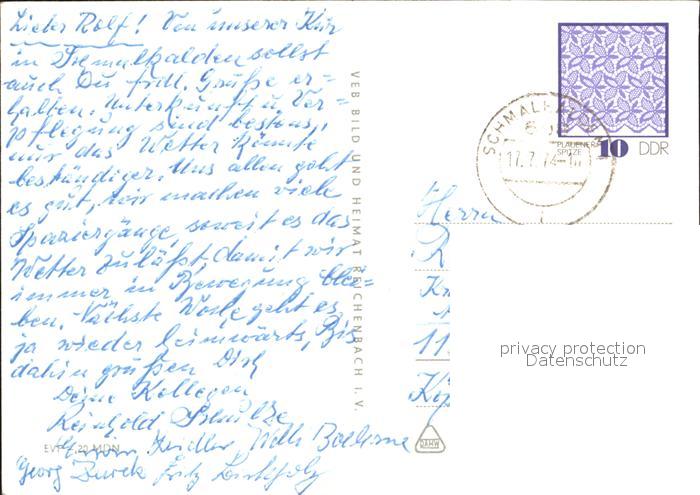 Lieber Rolf! Von unserer Kur
in Schmalkalden sollst
auch Du frdl. Grüße er=
halten. Unterkunft u. Ver=
pflegung sind bestens,
nur das Wetter könnte
beständiger. Uns allen geht
es gut, wir machen viele
Spaziergänge, soweit es das
Wetter zuläßt, damit wir
immer in Bewegung blei=
ben. Nächste Woche geht es
ja wieder heimwärts, Bis
dahin grüßen Dich
Deine Kollegen
Reinhold Schulze
Willi
Georg Fritz
EVP 0,20 MDN
VEB BILD UND HEIMAT REICHENBACH I. V.
DAHW
SCHMALKALDEN
17.7.74
PLAUENER
SPITZE
10 DDR
Herrn
R
11
privacy protection
Datenschutz